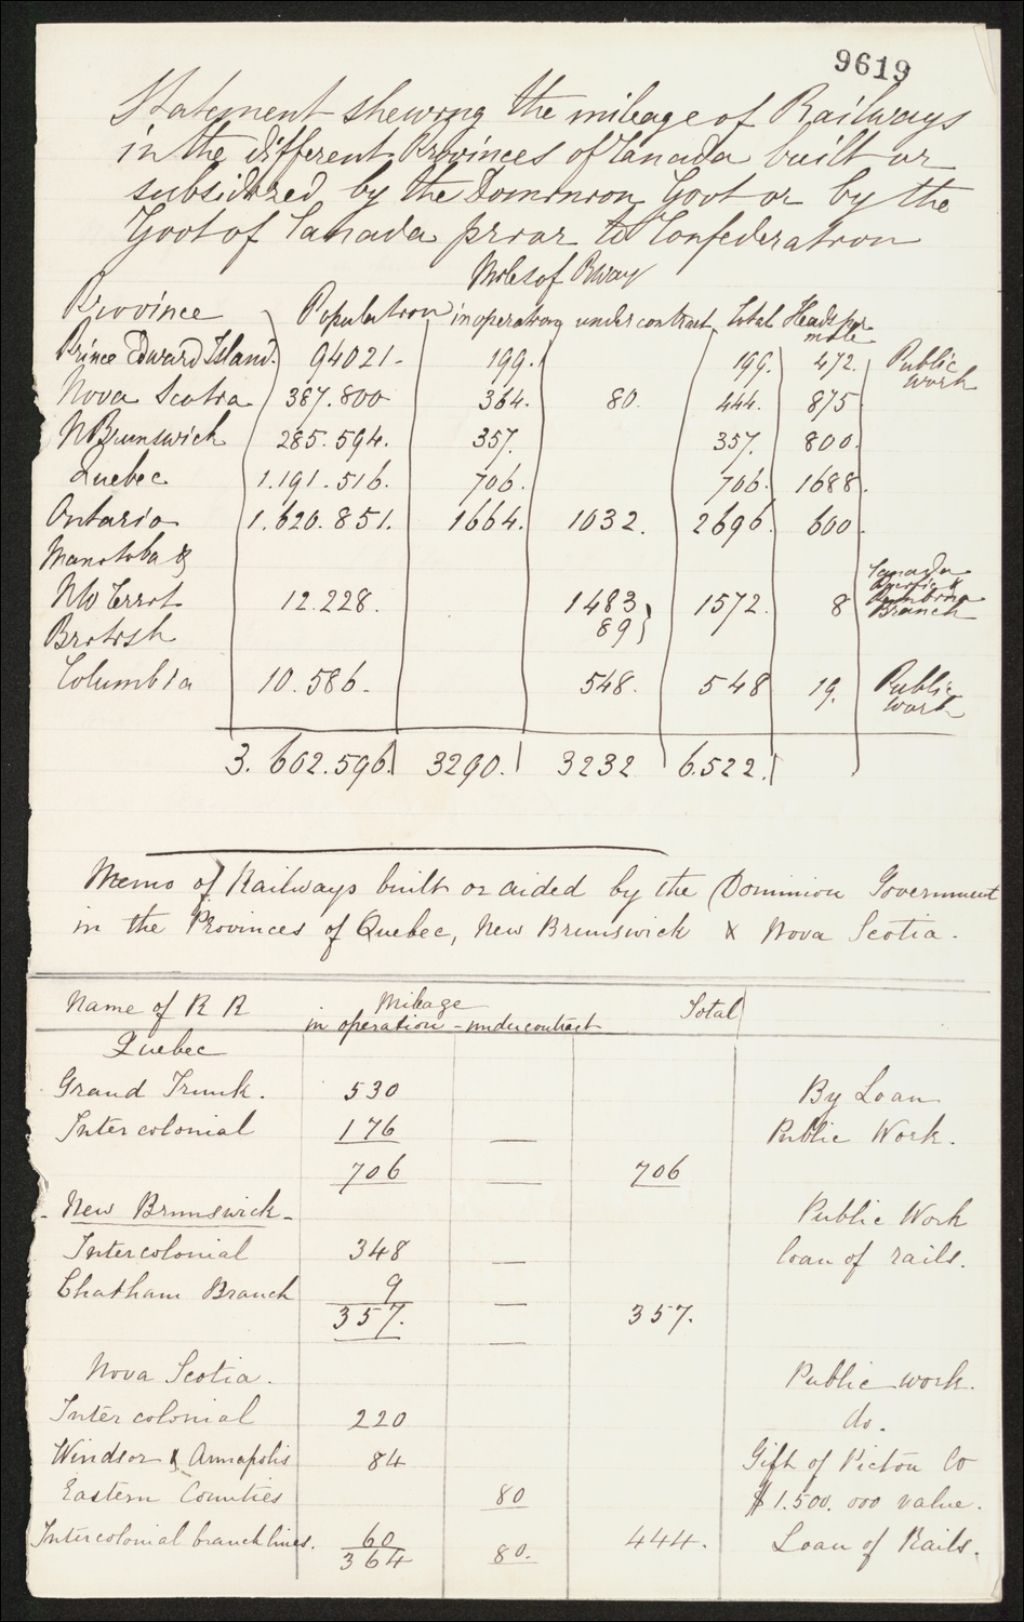 9619
Statement shewing the mileage of Railways
in the different Provinces of Canada built or
subsidized by the Dominion Govt or by the
Govt of Canada prior to Confederation
Miles of Rway
Province Population in operation under contract total Heads per mile
Prince Edward Island. 94021- 199. 199. 472. Public work
Nova Scotia 387.800 364. 80. 444. 875
N Brunswick 285.594. 357. 357. 800.
Quebec 1.191.516. 706. 706. 1688.
Ontario 1.620.851. 1664. 1032. 2696. 600.
Manitoba &
NW Territ 12.228. 1483 1572. 8 Canada Pacific & Pembina Branch
89
British
Columbia 10.586. 548. 548 19. Public work
3.602.596. 3290. 3232 6.522.
Memo of Railways built or aided by the Dominion Government
in the Provinces of Quebec, New Brunswick & Nova Scotia.
Name of R R Mileage Total
in operation - under contract
Quebec
Grand Trunk. 530 By Loan
Intercolonial 176 — Public Work.
706 — 706
- New Brunswick - Public Work
Intercolonial 348 — loan of rails.
Chatham Branch 9 —
357. — 357.
Nova Scotia. Public work.
Inter colonial 220 do.
Windsor & Annapolis 84 Gift of Picton Co
Eastern Counties 80 $1.500.000 value.
Intercolonial branch lines. 60 444. Loan of Rails.
364 80.